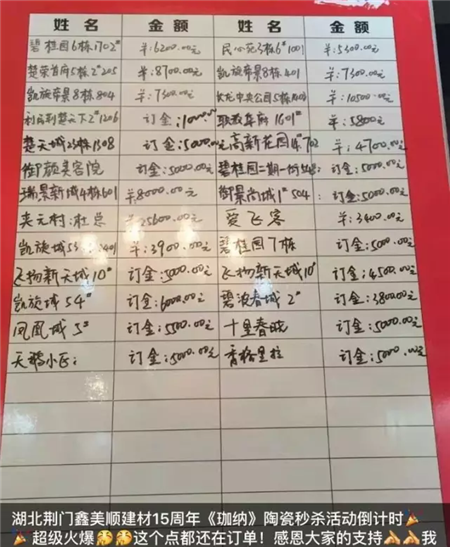 姓名 金额 姓名 金额
碧桂园6栋1702# ¥:6200.00元 民心苑3栋6#1001 ¥:5300.00元
楚荣首府5栋2#205 ¥:8700.00元 凯旋帝景8栋401 ¥:7300.00元
凯旋帝景8栋804 ¥:7300.00元 中央公园5栋 ¥:10500.00元
天下2#1206 订金: ¥:5800元
楚天城 栋1308 订金:5000.00元 高新花园4#702 ¥:4700.00元
御颜美容院 订金:5000.00元 碧桂园二期一 订金:5000.00元
瑞景新城4栋601 ¥8000.00元 御景尚城1#504 :5000.00元
夹元村:杜总 ¥:25600.00元 爱飞客 ¥:3400.00元
凯旋城 401 ¥:3900.00元 碧桂园7栋 订金:5000.00元
飞扬新天城10# 订金:5000.00元 飞扬新天城10# 订金:4500.00元
凯旋城54# 订金:6000.00元 碧波春城2# 订金:3800.00元
凤凰城5# 订金:5500.00元 十里春晓 订金:5000.00元
天鹅小区: 订金:5000.00元 香格里拉 订金:5000.00元
湖北荆门鑫美顺建材15周年《珈纳》陶瓷秒杀活动倒计时🎉
🎉超级火爆🤔🤔这个点都还在订单！感恩大家的支持🙏🙏我